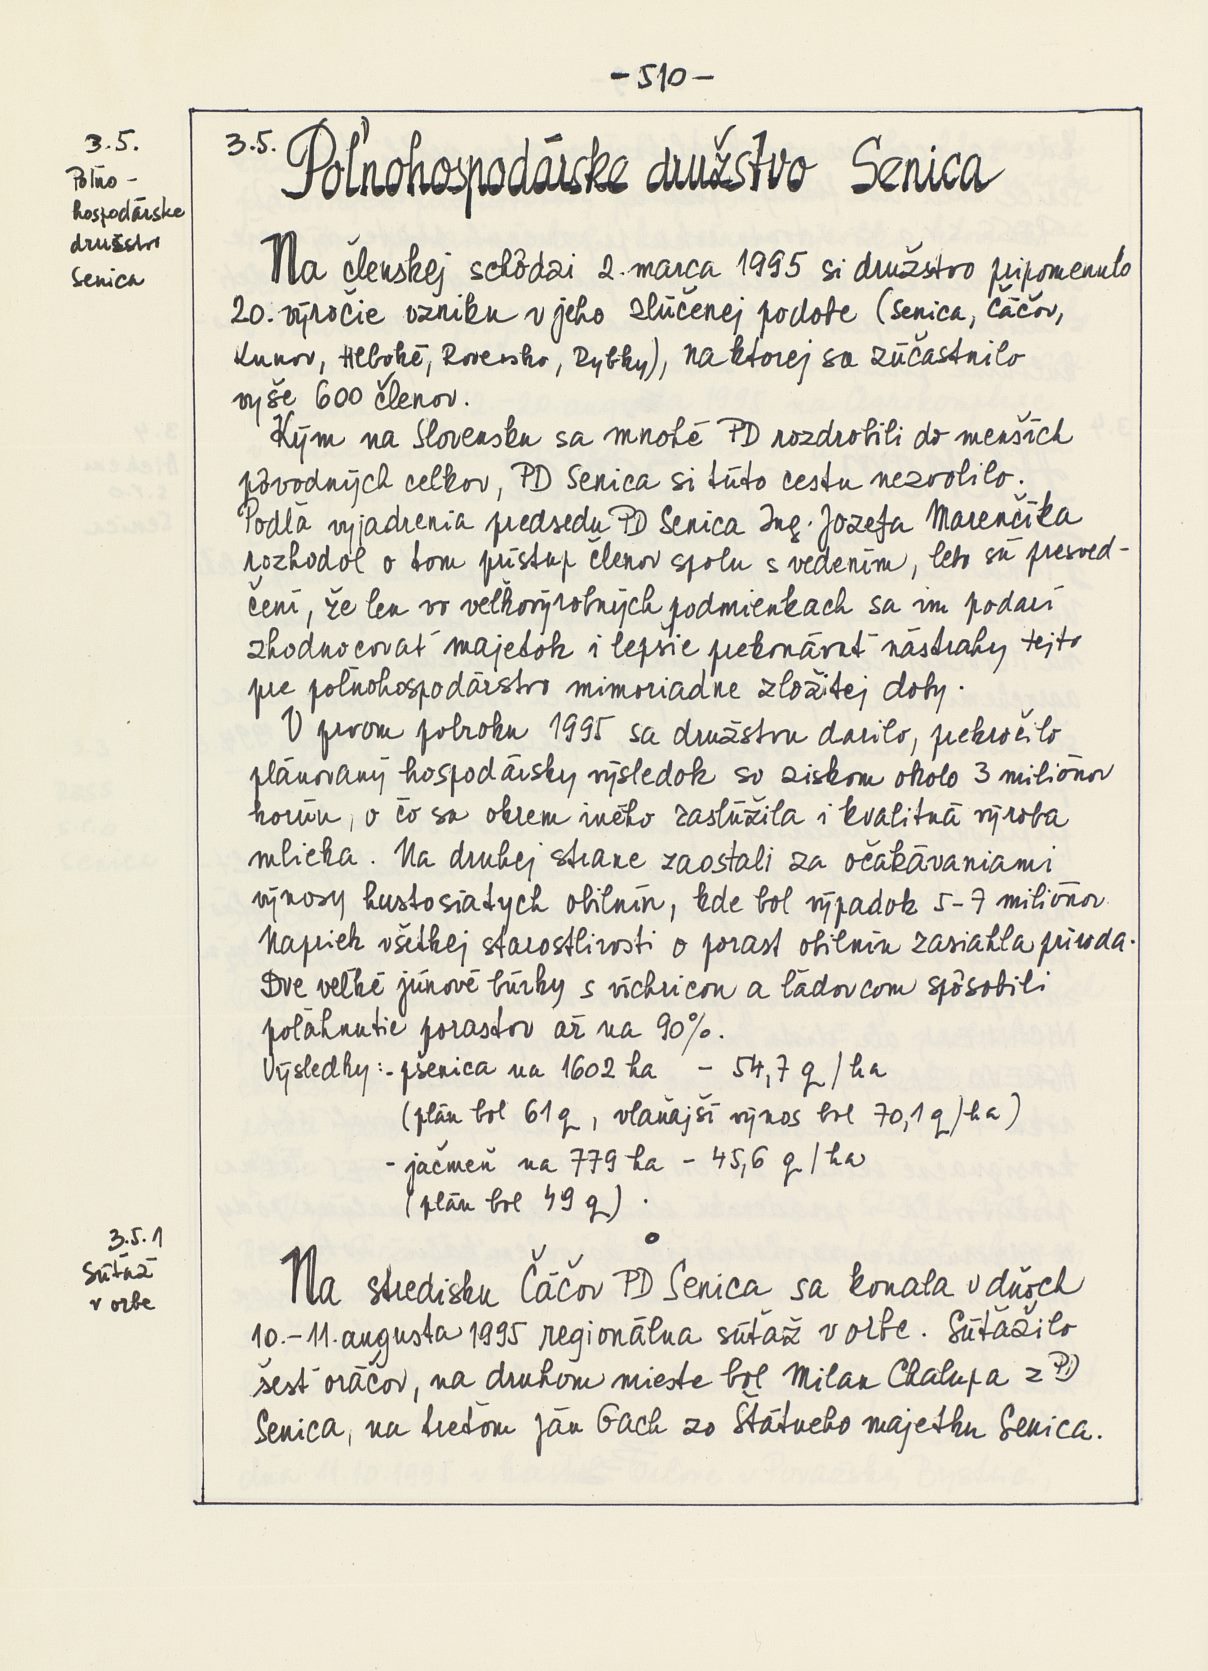 - 510 -
3.5.
Poľno-
hospodárske
družstvo
Senica
3.5. Poľnohospodárske družstvo Senica
Na členskej schôdzi 2. marca 1995 si družstvo pripomenulo
20. výročie vzniku v jeho zlúčenej podobe (Senica, Čáčov,
Kunov, Hlboké, Rovensko, Rybky), na ktorej sa zúčastnilo
vyše 600 členov.
Kým na Slovensku sa mnohé PD rozdrobili do menších
pôvodných celkov, PD Senica si túto cestu nezvolilo.
Podľa vyjadrenia predsedu PD Senica Ing. Jozefa Marenčíka
rozhodol o tom prístup členov spolu s vedením, lebo sú presved-
čení, že len vo veľkovýrobných podmienkach sa im podarí
zhodnocovať majetok i lepšie prekonávať nástrahy tejto
pre poľnohospodárstvo mimoriadne zložitej doby.
V prvom polroku 1995 sa družstvu darilo, prekročilo
plánovaný hospodársky výsledok so ziskom okolo 3 miliónov
korún, o čo sa okrem iného zaslúžila i kvalitná výroba
mlieka. Na druhej strane zaostali za očakávaniami
výnosy hustosiatych obilnín, kde bol výpadok 5-7 miliónov.
Napriek všetkej starostlivosti o porast obilnín zasiahla príroda.
Dve veľké júnové búrky s víchricou a ľadovcom spôsobili
poľahnutie porastov až na 90%.
Výsledky: - pšenica na 1602 ha - 54,7 q/ha
(plán bol 61 q, vlaňajší výnos bol 70,1 q/ha)
- jačmeň na 779 ha - 45,6 q/ha
(plán bol 49 q).
3.5.1
Súťaž
v orbe
Na stredisku Čáčov PD Senica sa konala v dňoch
10.-11. augusta 1995 regionálna súťaž v orbe. Súťažilo
šesť oráčov, na druhom mieste bol Milan Chalupa z PD
Senica, na treťom Ján Gach zo Štátneho majetku Senica.